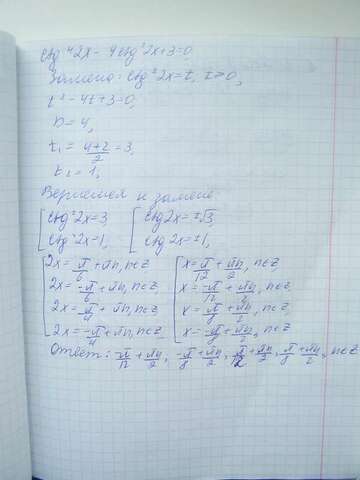 ctg⁴2x - 4ctg²2x+3=0
Замена: ctg²2x=t, t≥0,
t²-4t+3=0,
D=4,
t₁ = (4+2)/2 = 3,
t₂ = 1,
Вернемся к замене
[ctg²2x=3, [ctg2x=±√3,
[ctg²2x=1, [ctg2x=±1,
[2x=π/6+πn, n∈Z, [x=π/12+πn/2, n∈Z,
[2x=-π/6+πn, n∈Z, [x=-π/12+πn/2, n∈Z,
[2x=π/4+πn, n∈Z, [x=π/8+πn/2, n∈Z,
[2x=-π/4+πn, n∈Z, [x=-π/8+πn/2, n∈Z,
Ответ: -π/12+πn/2, -π/8+πn/2, π/12+πn/2, π/8+πn/2, n∈Z